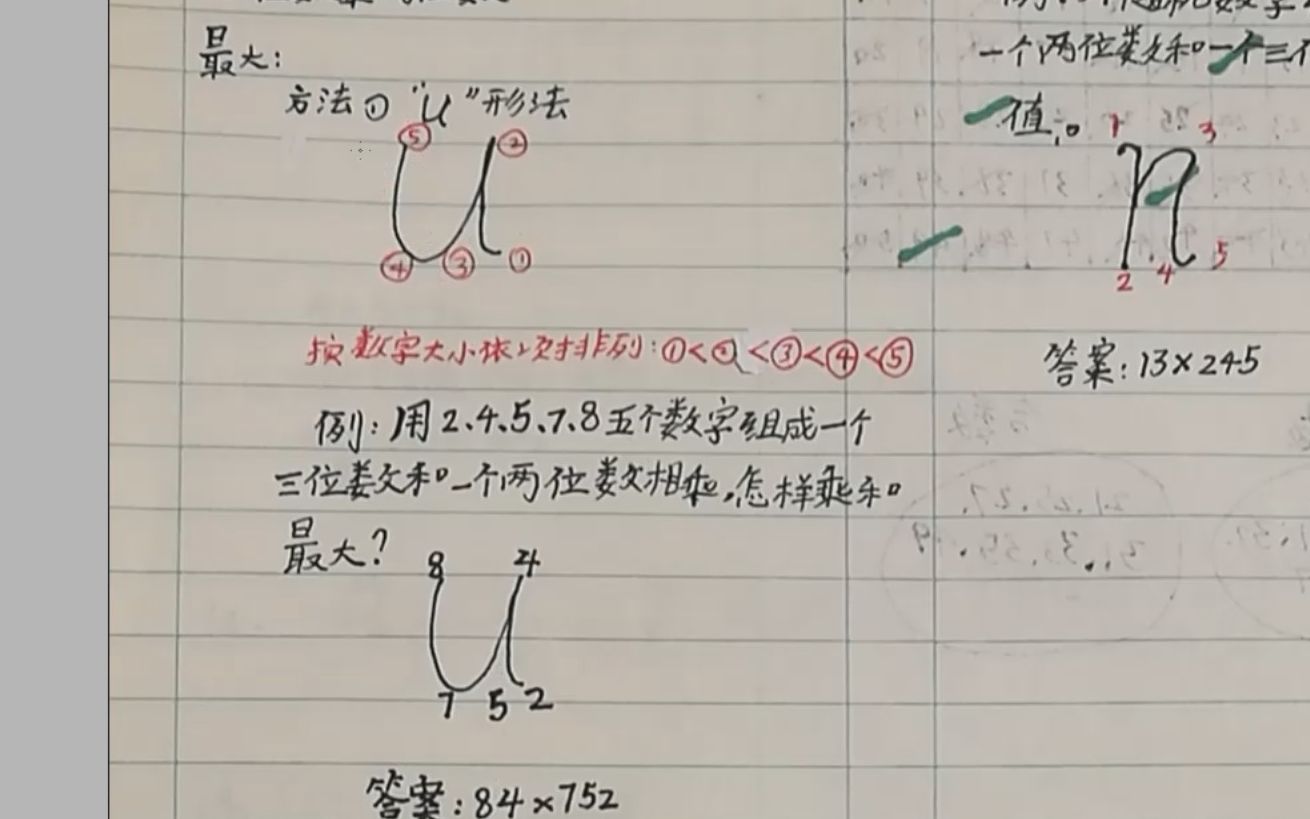 最大：
方法① “u”形法
⑤ ②
④ ③ ①
按数字大小依次排列：①<②<③<④<⑤
例：用2、4、5、7、8五个数字组成一个
三位数和一个两位数相乘，怎样乘积
最大？
8 4
7 5 2
答案：84×752
一个两位数和一个三
值。
1 3
2 4 5
答案：13×245